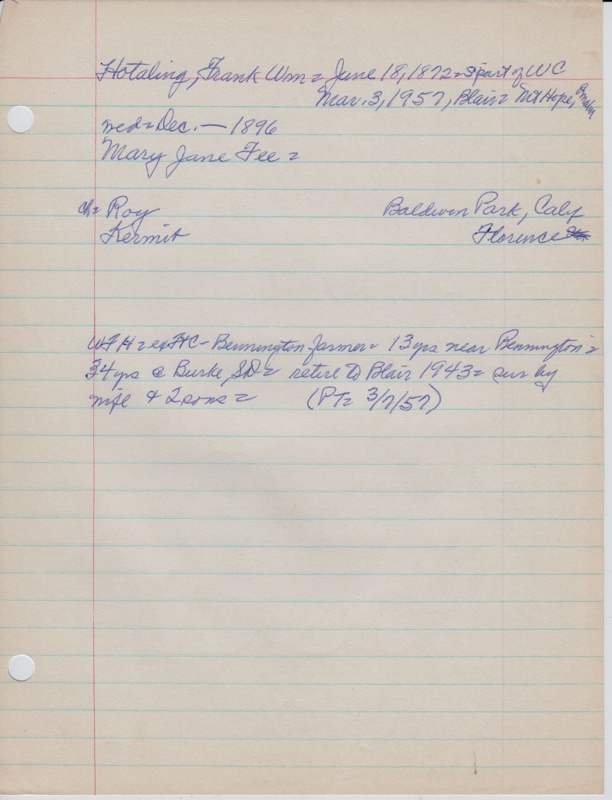 Hotaling, Frank Wm = June 18, 1872 = S part of WC
Mar. 3, 1957, Blair = Mt Hope, Omaha
md = Dec. — 1896
Mary Jane Fee =
ch = Roy Baldwin Park, Calif
Kermit Florence
WFH = ex FHC - Bennington farmer = 13 yrs near Bennington =
34 yrs @ Burke SD = retire to Blair 1943 = sur by
wife & 2 sons = (PT = 3/7/57)